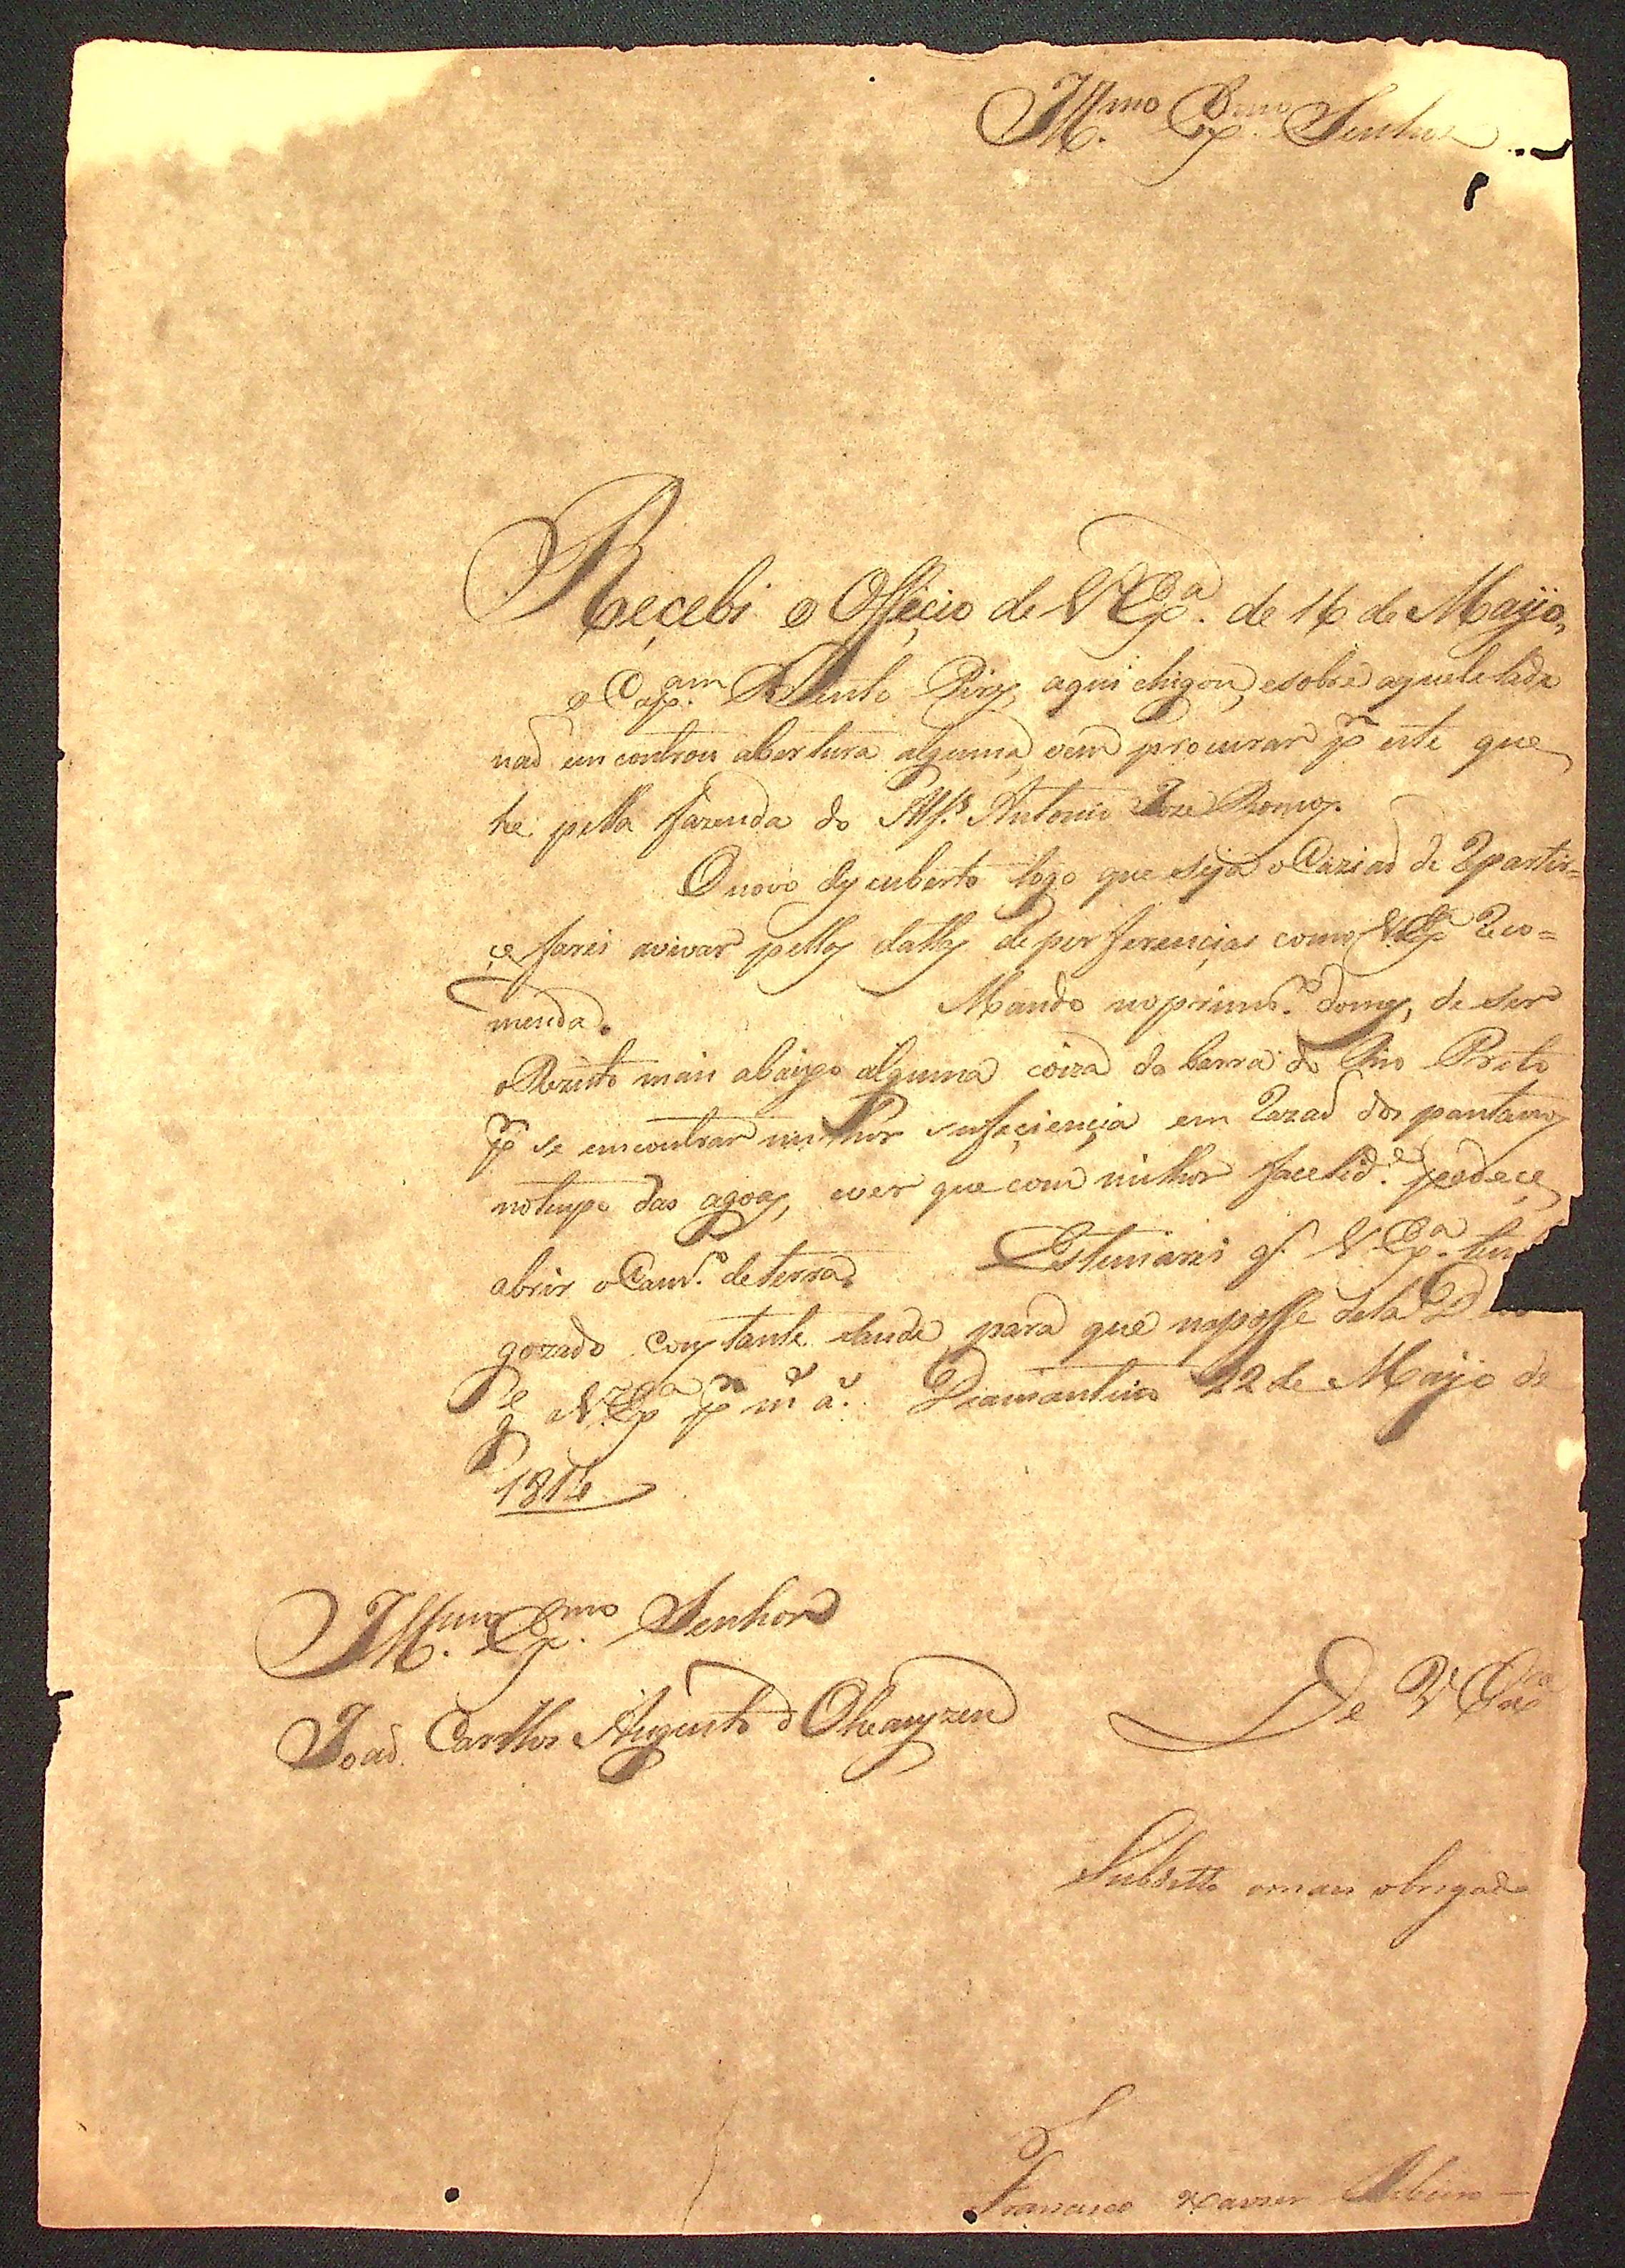 Ill.mo Ex.mo Senhor
Reçebi o Offiçio de V Ex.a de 16 de Mayo,
o Cap.am Bento Pirez, aqui chigou, esobre aquele lado
naõ encontrou abertura alguma, vem procurar p.r este que
he pella fazenda do Alf.s Antonio Joze Ramoz.
O novo dezcuberto logo que seja oCaziaõ de Repartir=
çe farei avivar pellaz dattaz de perferençias como V.Ex.a Reco=
menda.
Mando noprimr.o domz, de ser
oRezisto mais abaixo alguma coiza da barra do Rio Preto
p.r se encontrar milhor sufeçiençia em Razaõ dos pantanoz
notempo das agoaz, ever que com milhor facelid.e podeçe
abrir oCam.o deterra.
Estemarei q V Ex.a
gozado conztante saude para que naposse dela D
g.e a V.Ex.a p.r m.s a.s Diamantino 22 de Mayo de
1814
Ill.mo Ex.mo Senhor
Joaõ Carllos Augusto d Oheauyzen
De V Ex.a
Subditto omais obrigado
Francisco Xavier Ribeiro